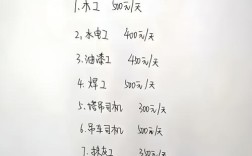 1.木工 500元/天
2.水电工 400元/天
3.油漆工 450元/天
4.焊工 500元/天
5.塔吊司机 300元/天
6.吊车司机 500元/天
7.抹灰工 350元/天